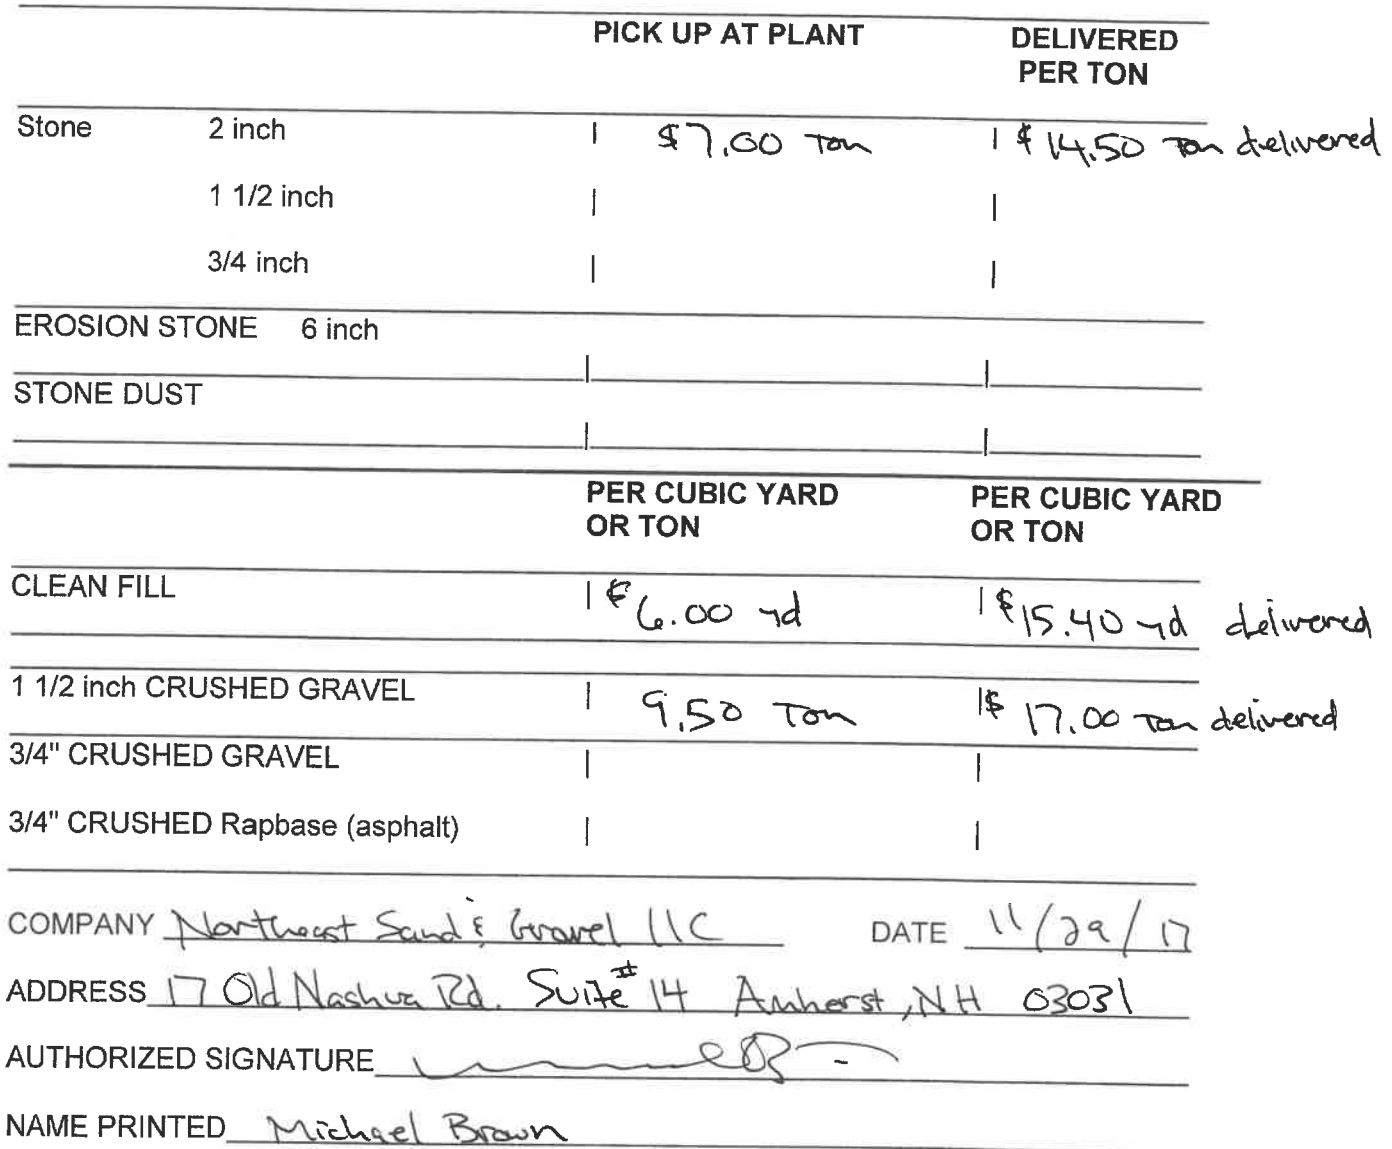 PICK UP AT PLANT DELIVERED
PER TON
Stone 2 inch | $7.00 Ton | $14.50 Ton delivered
1 1/2 inch | |
3/4 inch | |
EROSION STONE 6 inch
| |
STONE DUST
| |
PER CUBIC YARD PER CUBIC YARD
OR TON OR TON
CLEAN FILL | $6.00 yd | $15.40 yd delivered
1 1/2 inch CRUSHED GRAVEL | 9.50 Ton | $17.00 Ton delivered
3/4" CRUSHED GRAVEL | |
3/4" CRUSHED Rapbase (asphalt) | |
COMPANY Northeast Sand & Gravel LLC DATE 11/29/17
ADDRESS 17 Old Nashua Rd. Suite # 14 Amherst, NH 03031
AUTHORIZED SIGNATURE
NAME PRINTED Michael Brown